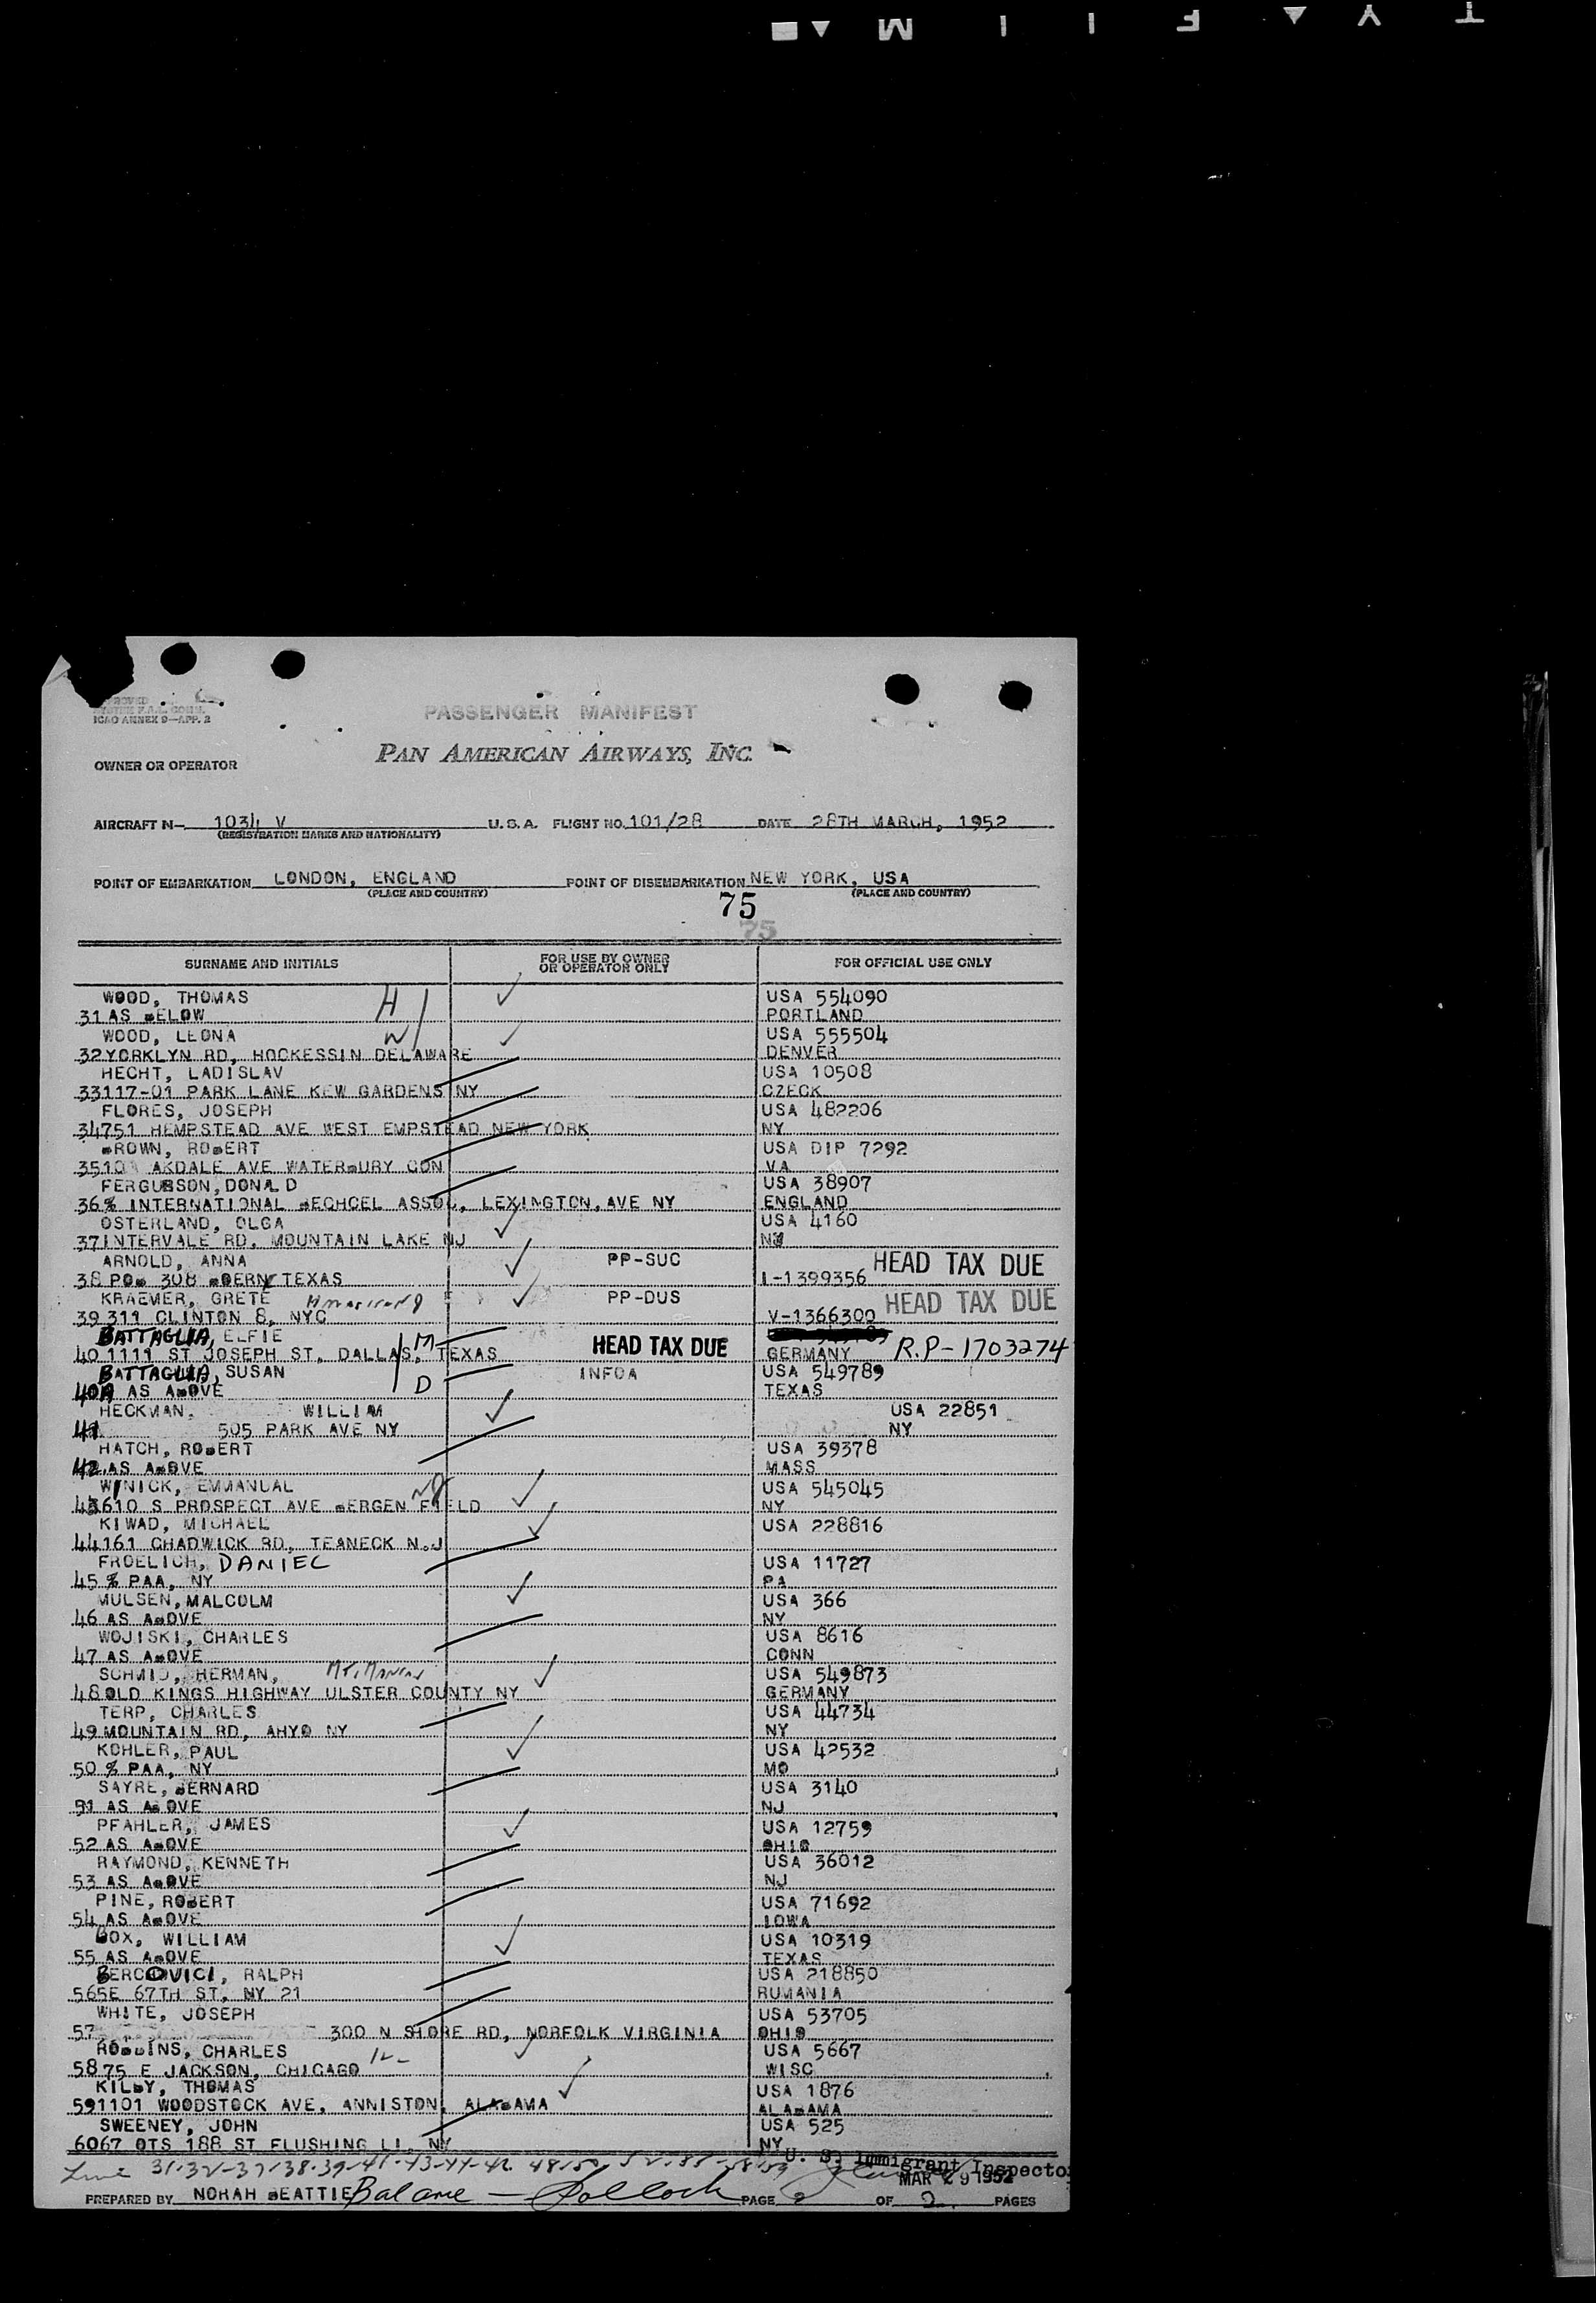 ICAO ANNEX 9—APP. 2
PASSENGER MANIFEST
PAN AMERICAN AIRWAYS, INC.
OWNER OR OPERATOR
AIRCRAFT N— 1034 V U. S. A. FLIGHT NO. 101/28 DATE 28TH MARCH, 1952
(REGISTRATION MARKS AND NATIONALITY)
POINT OF EMBARKATION LONDON, ENGLAND POINT OF DISEMBARKATION NEW YORK, USA
(PLACE AND COUNTRY) (PLACE AND COUNTRY)
75
75
SURNAME AND INITIALS FOR USE BY OWNER OR OPERATOR ONLY FOR OFFICIAL USE ONLY
WOOD, THOMAS H USA 554090
31 AS BELOW PORTLAND
WOOD, LEONA W USA 555504
32 YORKLYN RD, HOCKESSIN DELAWARE DENVER
HECHT, LADISLAV USA 10508
33 117-01 PARK LANE KEW GARDENS NY CZECK
FLORES, JOSEPH USA 482206
34 751 HEMPSTEAD AVE WEST EMPSTEAD NEW YORK NY
BROWN, ROBERT USA DIP 7292
35 AKDALE AVE WATERBURY CON VA
FERGUSSON, DONALD USA 38907
36 % INTERNATIONAL BECHCEL ASSOC, LEXINGTON, AVE NY ENGLAND
OSTERLAND, OLGA USA 4160
37 INTERVALE RD, MOUNTAIN LAKE NJ
ARNOLD, ANNA PP-SUC HEAD TAX DUE
38 POB 308 BOERNE TEXAS I-1399356
KRAEMER, GRETE PP-DUS HEAD TAX DUE
39 311 CLINTON 8, NYC V-1366300
BATTAGLIA, ELFIE M HEAD TAX DUE
40 1111 ST JOSEPH ST, DALLAS, TEXAS GERMANY R.P-1703274
BATTAGLIA, SUSAN D INFOA USA 549789
40A AS ABOVE TEXAS
HECKMAN, WILLIAM USA 22851
41 505 PARK AVE NY NY
HATCH, ROBERT USA 39378
42 AS ABOVE MASS
WINICK, EMMANUAL NJ USA 545045
43 610 S PROSPECT AVE BERGEN FIELD NY
KIWAD, MICHAEL USA 228816
44 161 CHADWICK RD, TEANECK N.J
FROELICH, DANIEL USA 11727
45 % PAA, NY PA
MULSEN, MALCOLM USA 366
46 AS ABOVE NY
WOJISKI, CHARLES USA 8616
47 AS ABOVE CONN
SCHMID, HERMAN, USA 549873
48 OLD KINGS HIGHWAY ULSTER COUNTY NY GERMANY
TERP, CHARLES USA 44734
49 MOUNTAIN RD, AHYO NY NY
KOHLER, PAUL USA 42532
50 % PAA, NY MO
SAYRE, BERNARD USA 3140
51 AS ABOVE NJ
PFAHLER, JAMES USA 12759
52 AS ABOVE OHIO
RAYMOND, KENNETH USA 36012
53 AS ABOVE NJ
PINE, ROBERT USA 71692
54 AS ABOVE IOWA
BOX, WILLIAM USA 10319
55 AS ABOVE TEXAS
BERCOVICI, RALPH USA 218850
56 5E 67TH ST, NY 21 RUMANIA
WHITE, JOSEPH USA 53705
57 300 N SHORE RD, NORFOLK VIRGINIA OHIO
ROBBINS, CHARLES USA 5667
58 75 E JACKSON, CHICAGO WISC
KILBY, THOMAS USA 1876
59 1101 WOODSTOCK AVE, ANNISTON, ALABAMA ALABAMA
SWEENEY, JOHN USA 525
60 67 OTS 188 ST FLUSHING LI, NY NY
U. S. Immigrant Inspector
MAR 29 1952
PREPARED BY NORAH BEATTIE PAGE 2 OF 2. PAGES